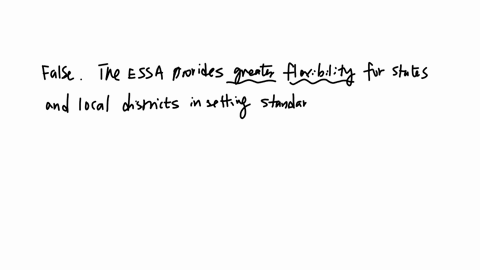 False. The ESSA provides greater flexibility for states
and local districts in setting standar